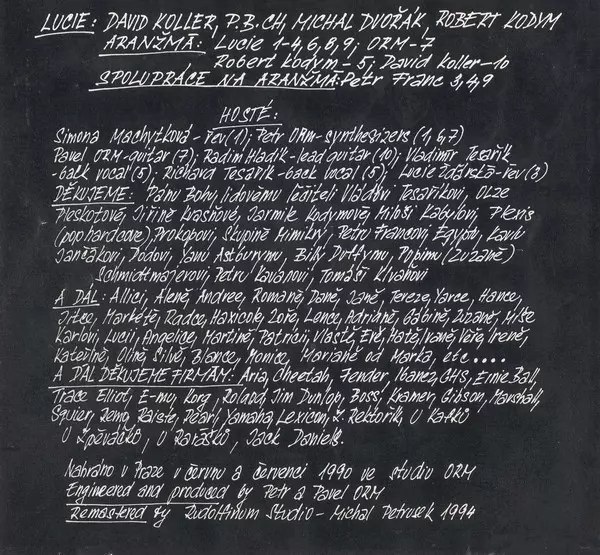 LUCIE: DAVID KOLLER, P.B.CH, MICHAL DVOŘÁK, ROBERT KODYM
ARANŽMÁ: Lucie 1-4,6,8,9; ORM-7
Robert Kodym-5; David Koller-10
SPOLUPRÁCE NA ARANŽMÁ: Petr Franc 3,4,9
HOSTÉ:
Simona Machytková-řev(1); Petr ORM-synthesizers (1,6,7)
Pavel ORM-guitar (7); Radim Hladík-lead guitar (10); Vladimír Tesařík
-back vocal (5); Richard Tesařík-back vocal (5); Lucie Žďárská-řev (8)
DĚKUJEME: Pánu Bohu, lidovému léčiteli Vláďovi Tesaříkovi, Olze
Pleskotové, Jiřině Kvašňové, Jarmile Kodymové, Miloši Kabylovi, Plexis
(pop hardcove), Prokopovi, Skupině Mimikry, Petru Francovi, Egyptu, Karlu
Jančákovi, Dodovi, Yanu Astburymu, Billy Duffymu, Pobimu (Zuzaně)
Schmidtmajerovi, Petru Kavanovi, Tomáši Klvaňovi
A DÁL: Allici, Aleně, Andree, Romaně, Daně, Janě, Tereze, Yarce, Hance,
Jitce, Markétě, Radce, Haxicole, Zoře, Lence, Adrinně, Gábině, Zuzaně, Míše
Karlovi, Lucii, Angelice, Martině, Patricii, Vlastě, Evě, Matě, Ivaně, Věře, Ireně,
Kateřině, Olině, Silvě, Blance, Monice, Marianě od Marka, etc.....
A DÁL DĚKUJEME FIRMÁM: Aria, Cheetah, Fender, Ibanez, GHS, Ernie Ball,
Trace Elliot, E-mu, Korg, Roland, Jim Dunlop, Boss, Kramer, Gibson, Marshall,
Squier, Remo, Paiste, Pearl, Yamaha, Lexicon, Ž. Rektorik, U Kafků
U Zpěváčků, U Parašků, Jack Daniels.
Nahráno v Praze v červnu a červenci 1990 ve studiu ORM
Engineered and produced by Petr a Pavel ORM
Remastered by Rudolfinum Studio-Michal Petrusek 1994